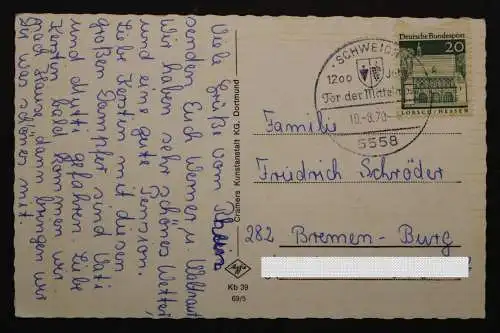 Viele Grüße vom Rhein
senden Euch Werner u. Waltraut
Wir haben sehr schönes Wetter
und eine gute Pension.
Liebe Kerstin mit diesem
großen Dampfer sind Vati
und Mutti gefahren. Liebe
Kerstin bald kommen wir
nach Hause dann bringen wir
Dir was schönes mit.
Cramers Kunstanstalt KG, Dortmund
Agfa
Kb 39
69/5
SCHWEICH
1200 Jahre
Tor der Mittelmosel
19.-8.70
5558
Deutsche Bundespost
20
LORSCH/HESSEN
Familie
Friedrich Schröder
282 Bremen-Burg